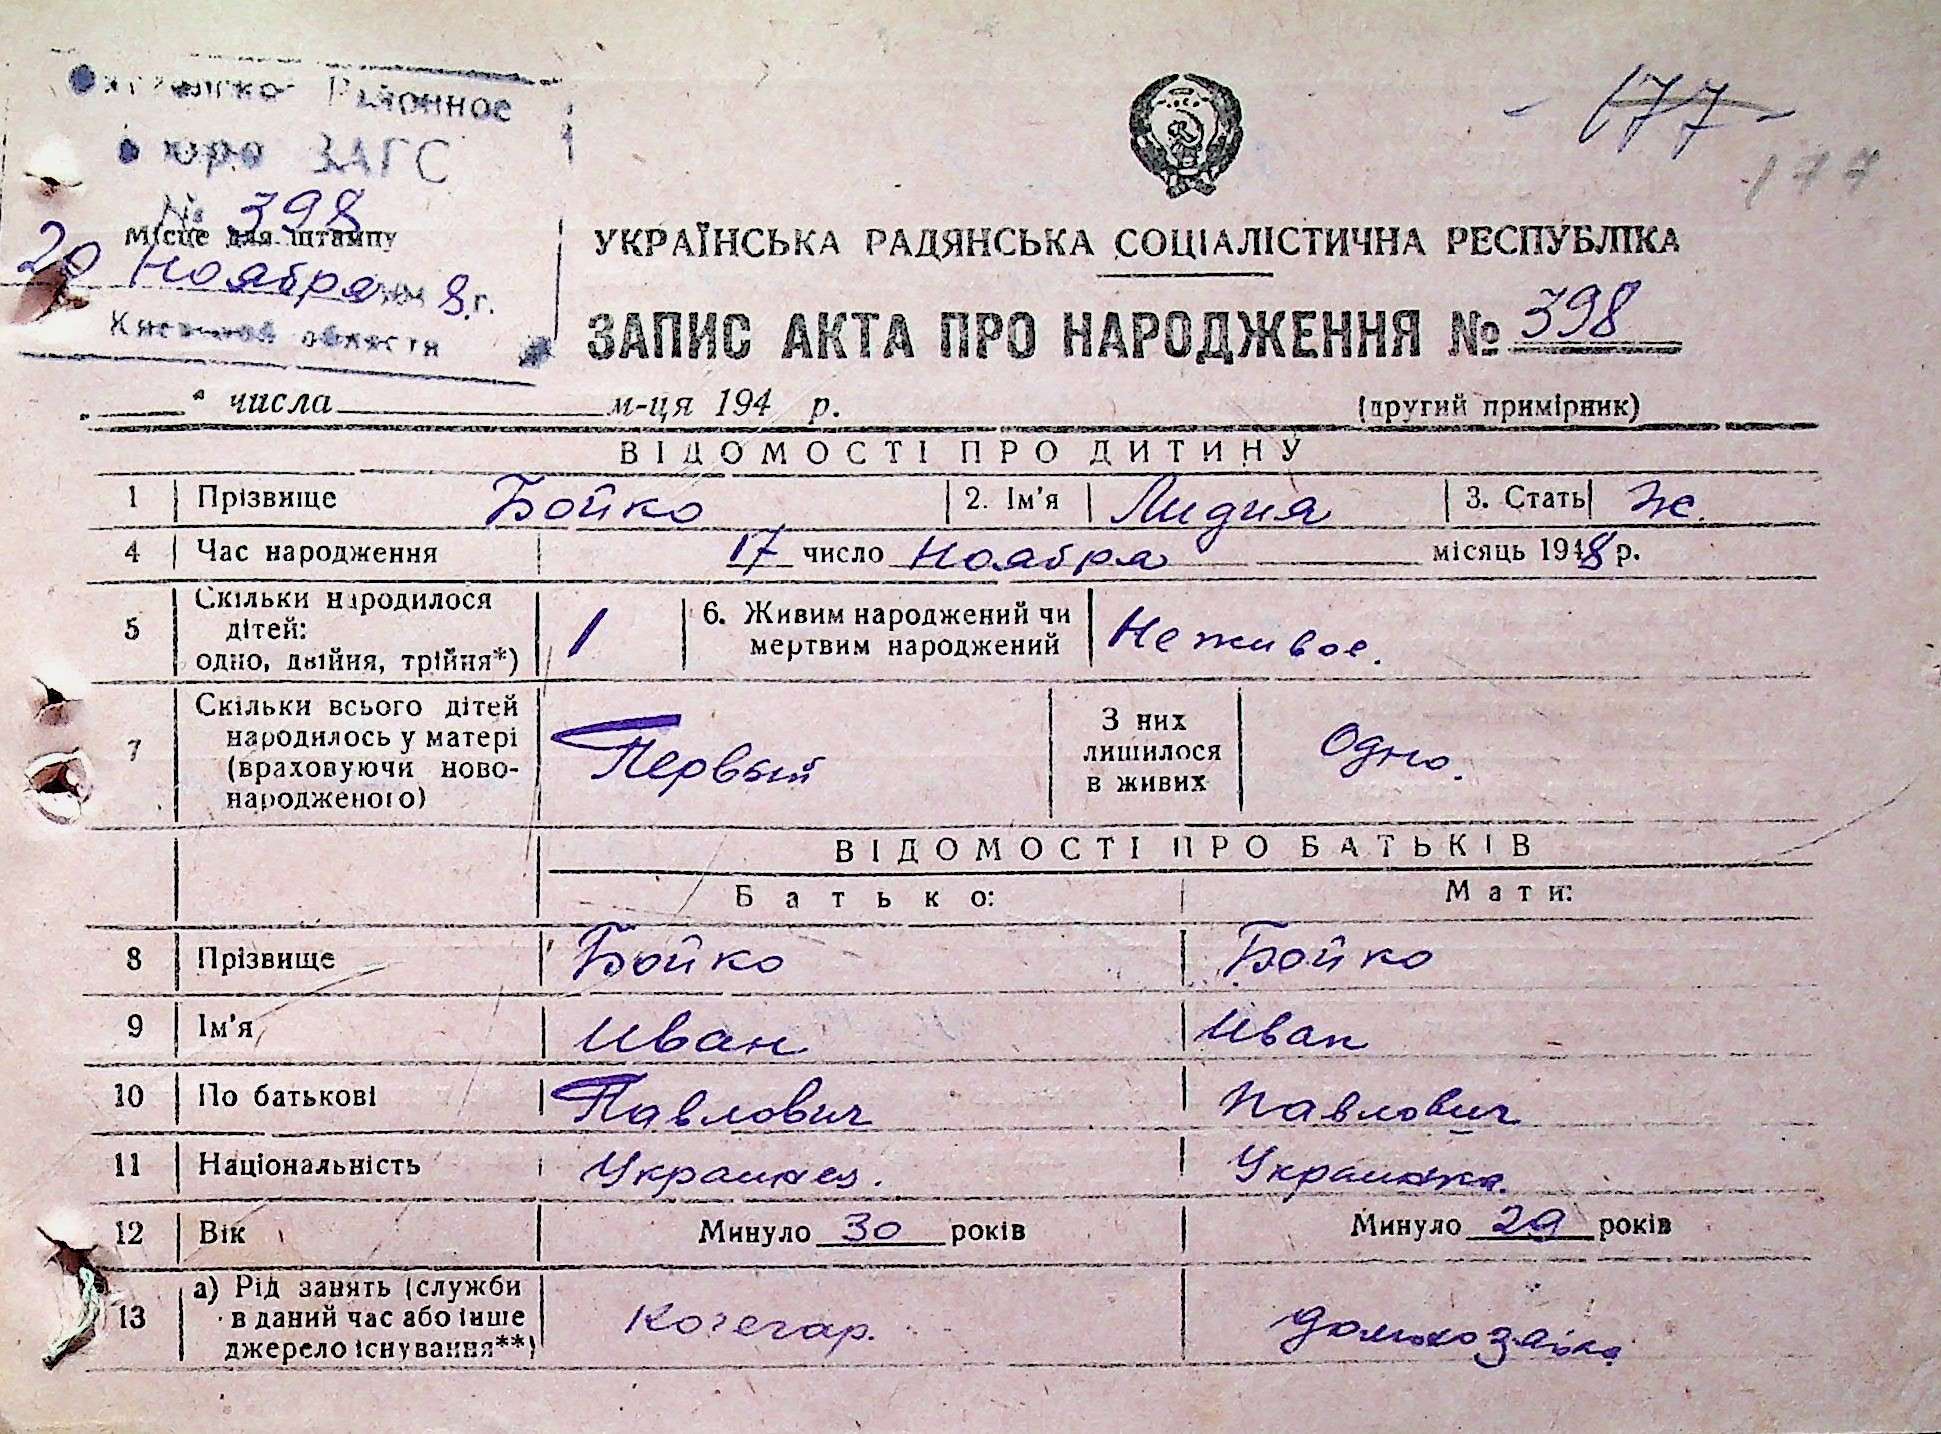 Районное
бюро ЗАГС
№ 398
Місце для штампу
20 Ноября 194 8 г.
Киевской области
177
177
УКРАЇНСЬКА РАДЯНСЬКА СОЦІАЛІСТИЧНА РЕСПУБЛІКА
ЗАПИС АКТА ПРО НАРОДЖЕННЯ № 398
„ ____ " числа ____ м-ця 194 р. (другий примірник)
ВІДОМОСТІ ПРО ДИТИНУ
1 Прізвище Бойко 2. Ім'я Лидия 3. Стать Ж.
4 Час народження 17 число Ноября місяць 1948 р.
5 Скільки народилося дітей: одно, двійня, трійня*) 1 6. Живим народжений чи мертвим народжений Неживое.
7 Скільки всього дітей народилось у матері (враховуючи ново-народженого) Первый З них лишилося в живих Одно.
ВІДОМОСТІ ПРО БАТЬКІВ
Батько: Мати:
8 Прізвище Бойко Бойко
9 Ім'я Иван Иван
10 По батькові Павлович Павлович
11 Національність Украинец. Украинка.
12 Вік Минуло 30 років Минуло 29 років
13 а) Рід занять (служби в даний час або інше джерело існування**) Кочегар. домохозяйка